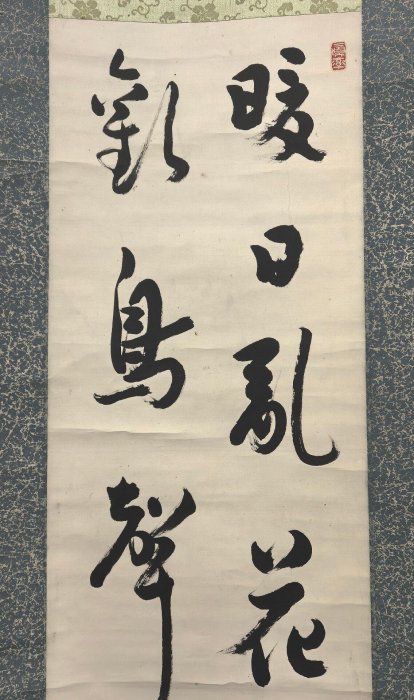 暖日亂花
歡鳥聲